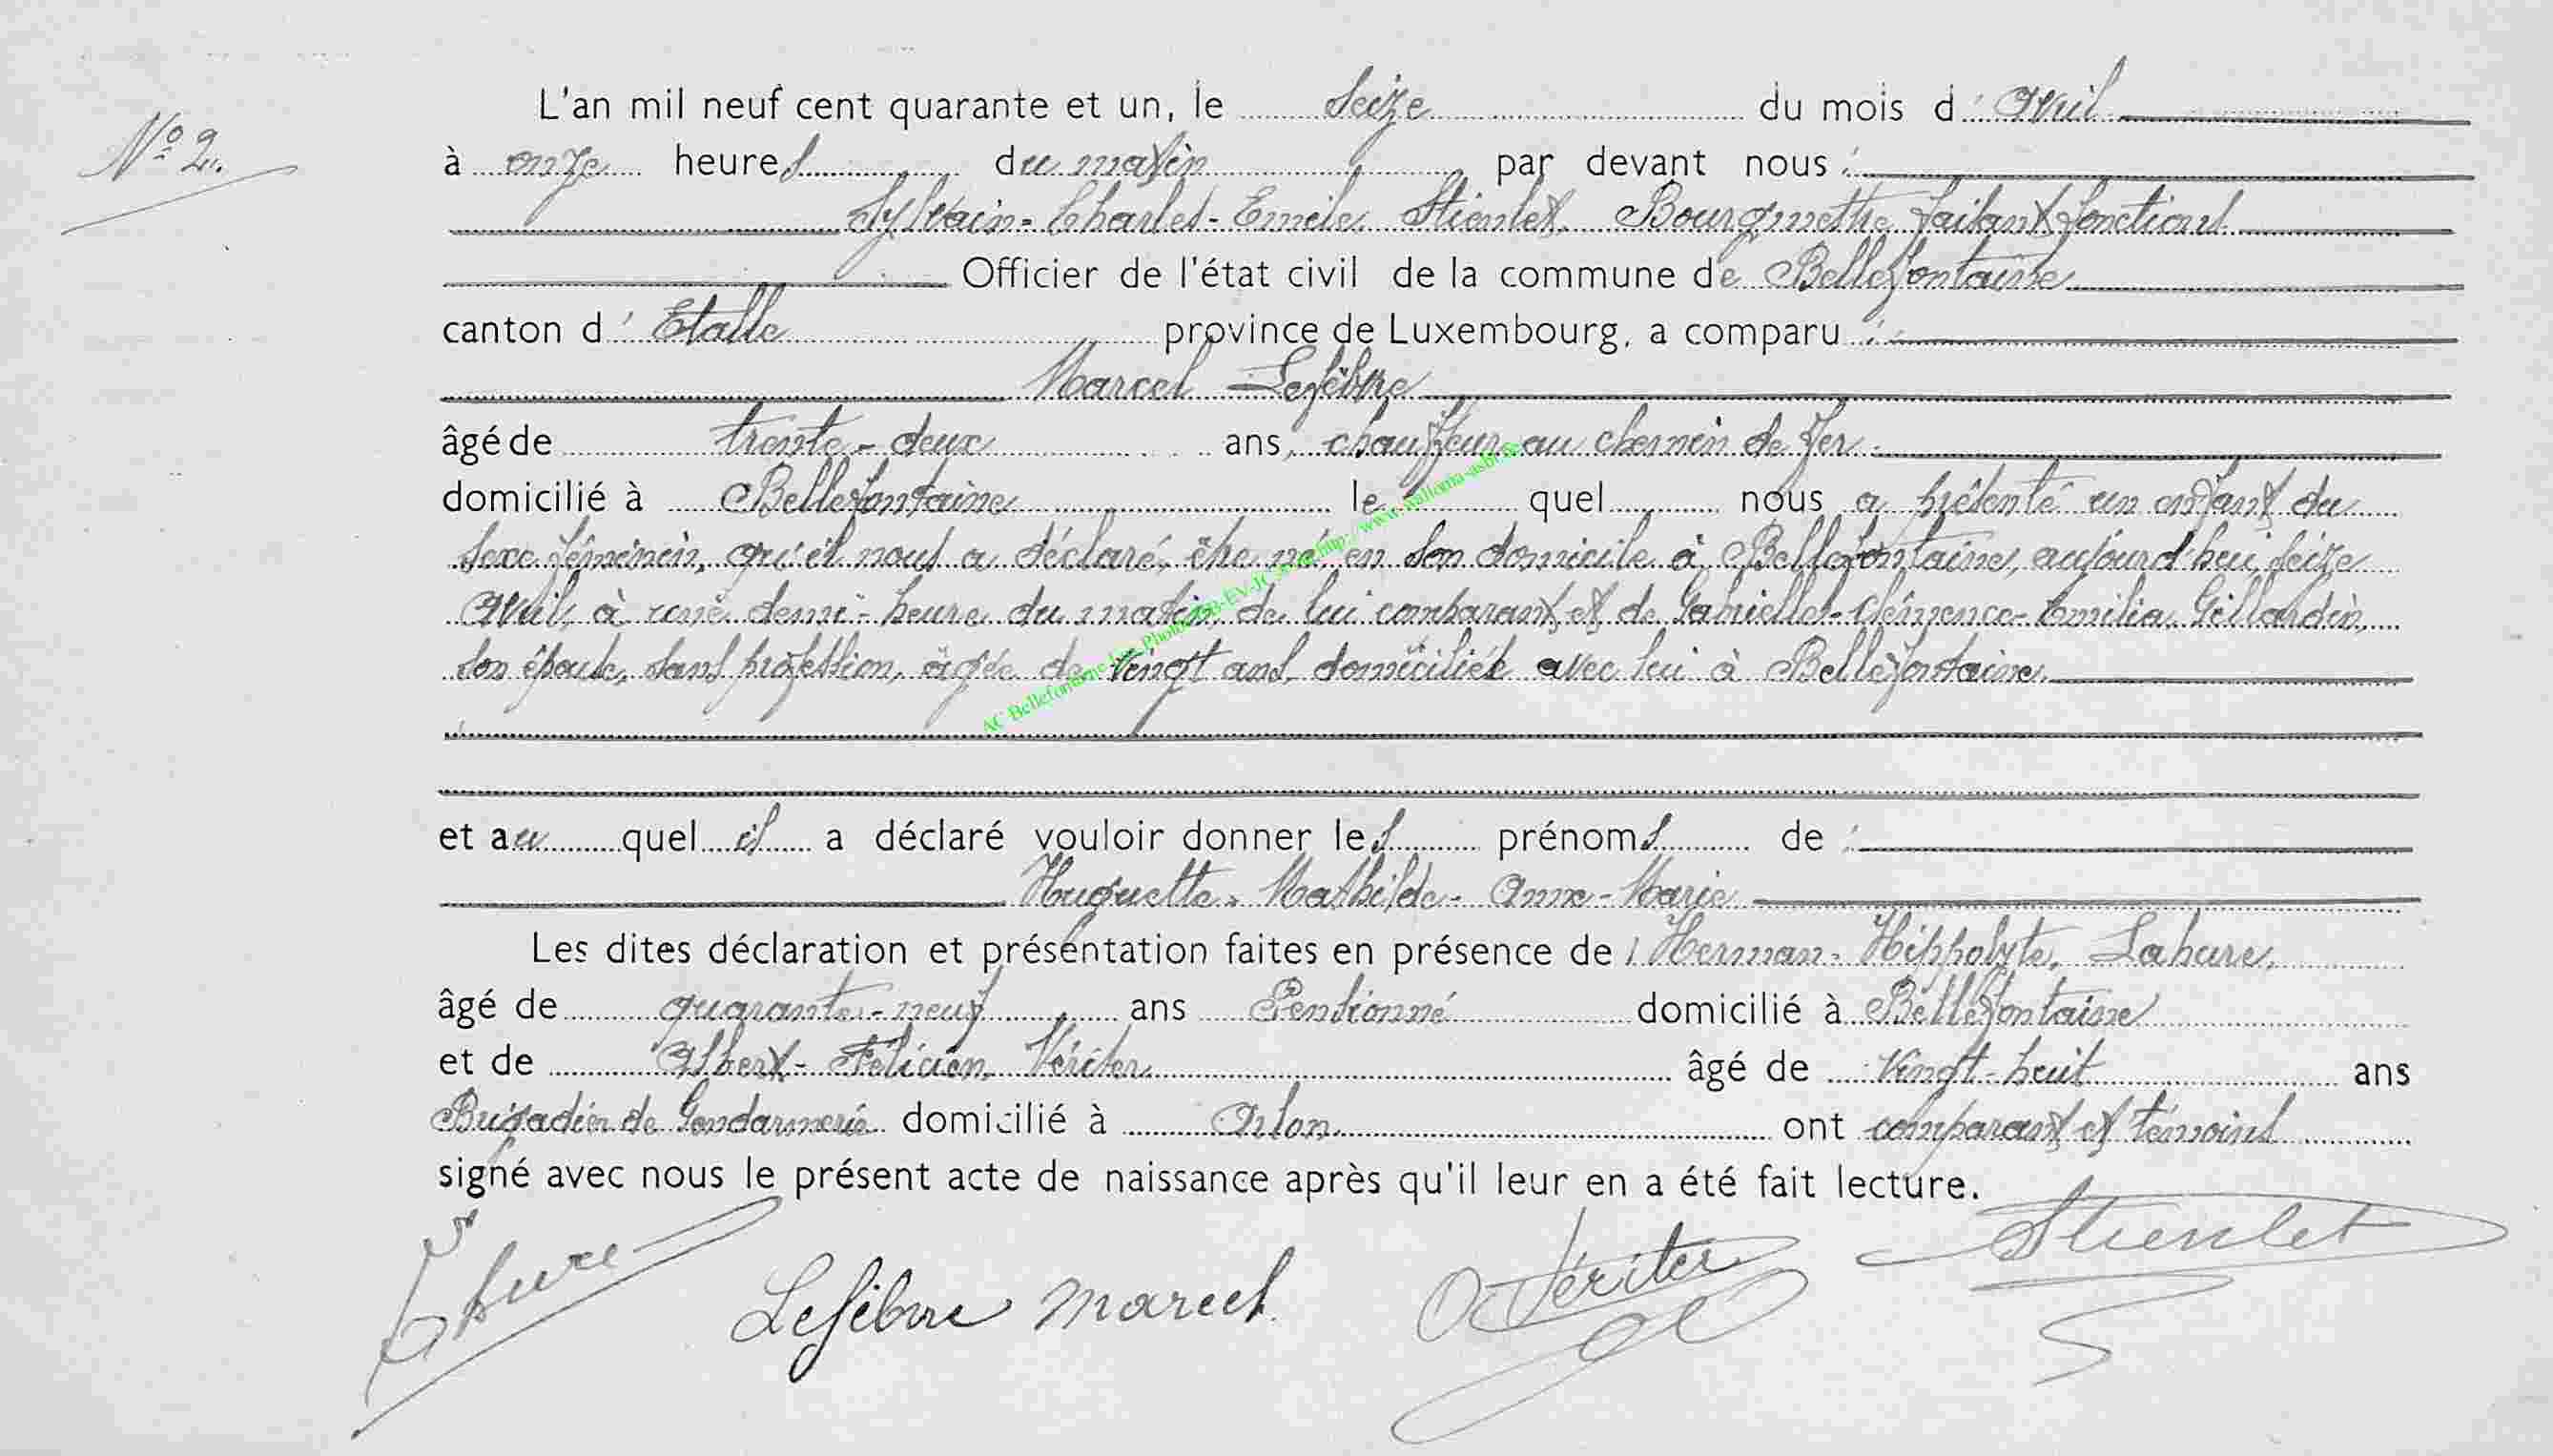 L'an mil neuf cent quarante et un, le seize du mois d'Avril
N° 2.
à onze heures du matin par devant nous :
Sylvain-Charles-Emile Stienlet, Bourgmestre faisant fonctions
Officier de l'état civil de la commune de Bellefontaine
canton d'Etalle province de Luxembourg, a comparu :
Marcel Lefèbvre
âgé de trente-deux ans, chauffeur au chemin de fer
domicilié à Bellefontaine le quel nous a présenté un enfant du
sexe féminin, qu'il nous a déclaré, être né en son domicile à Bellefontaine, aujourd'hui seize
Avril, à une demi-heure du matin, de lui comparant et de Gabrielle-Clémence-Emilia Gillardin,
son épouse, sans profession, âgée de vingt ans, domiciliée avec lui à Bellefontaine.
et au quel il a déclaré vouloir donner les prénoms de :
Huguette-Mathilde-Anne-Marie
Les dites déclaration et présentation faites en présence de : Herman-Hippolyte, Lahure,
âgé de quarante-neuf ans Pensionné domicilié à Bellefontaine
et de Albert-Félicien Vériter âgé de vingt-huit ans
Brigadier de Gendarmerie domicilié à Arlon ont comparant et témoins
signé avec nous le présent acte de naissance après qu'il leur en a été fait lecture.
Lahure Lefèbvre Marcel A Vériter Stienlet